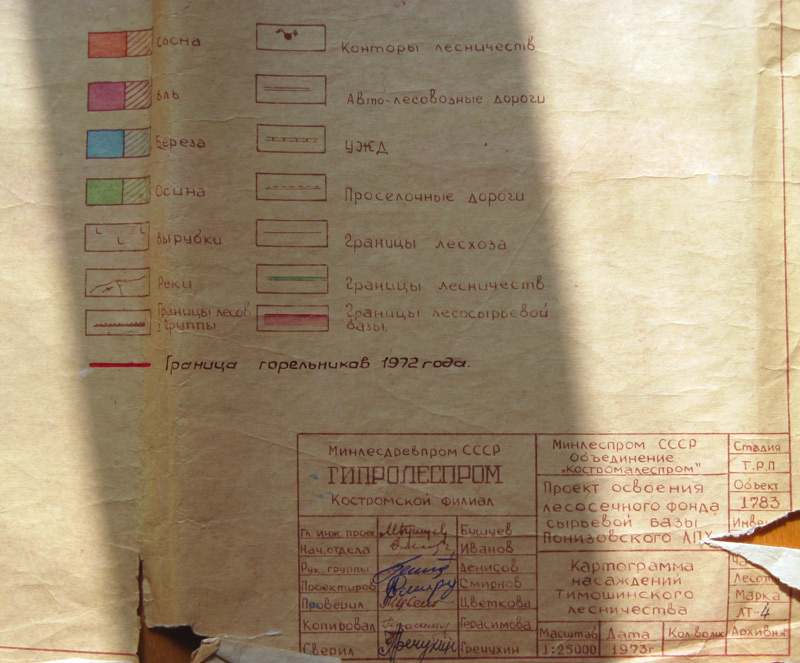 Сосна
Ель
Береза
Осина
Вырубки
Реки
Границы лесов
I группы
Конторы лесничеств
Авто-лесовозные дороги
УЖД
Проселочные дороги
Границы лесхоза
Границы лесничеств
Границы лесосырьевой
базы.
Граница горельников 1972 года.
Минлесдревпром СССР
ГИПРОЛЕСПРОМ
Костромской филиал
Гл. инж. проек Бушуев
Нач. отдела Иванов
Рук. группы Денисов
Проектиров Смирнов
Проверил Цветкова
Копировал Герасимова
Сверил Гречухин
Минлеспром СССР
Объединение
„Костромалеспром"
Проект освоения
лесосечного фонда
сырьевой базы
Понизовского ЛПХ
Картограмма
насаждений
Тимошинского
лесничества
Масштаб Дата Кол. во лик
1:25000 1973г
Стадия
Т.Р.П
Объект
1783
Инве
Лесот
Марка
ЛТ-4
Архивн